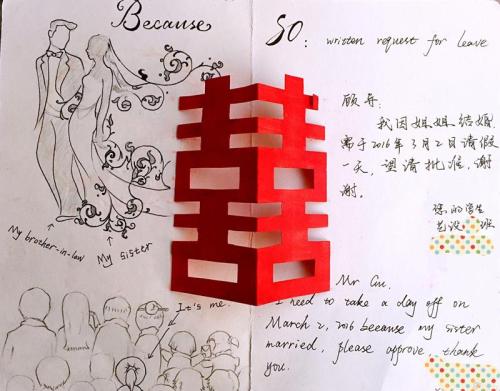 Because
My brother-in-law
My sister
It's me.
SO: written request for leave
顾导:
我因姐姐结婚
需于2016年3月2日请假
一天,望请批准,谢
谢。
您的学生
艺设 班
Mr Gu.
I need to take a day off on
March 2, 2016 because my sister
married, please approve, thank
you.
囍